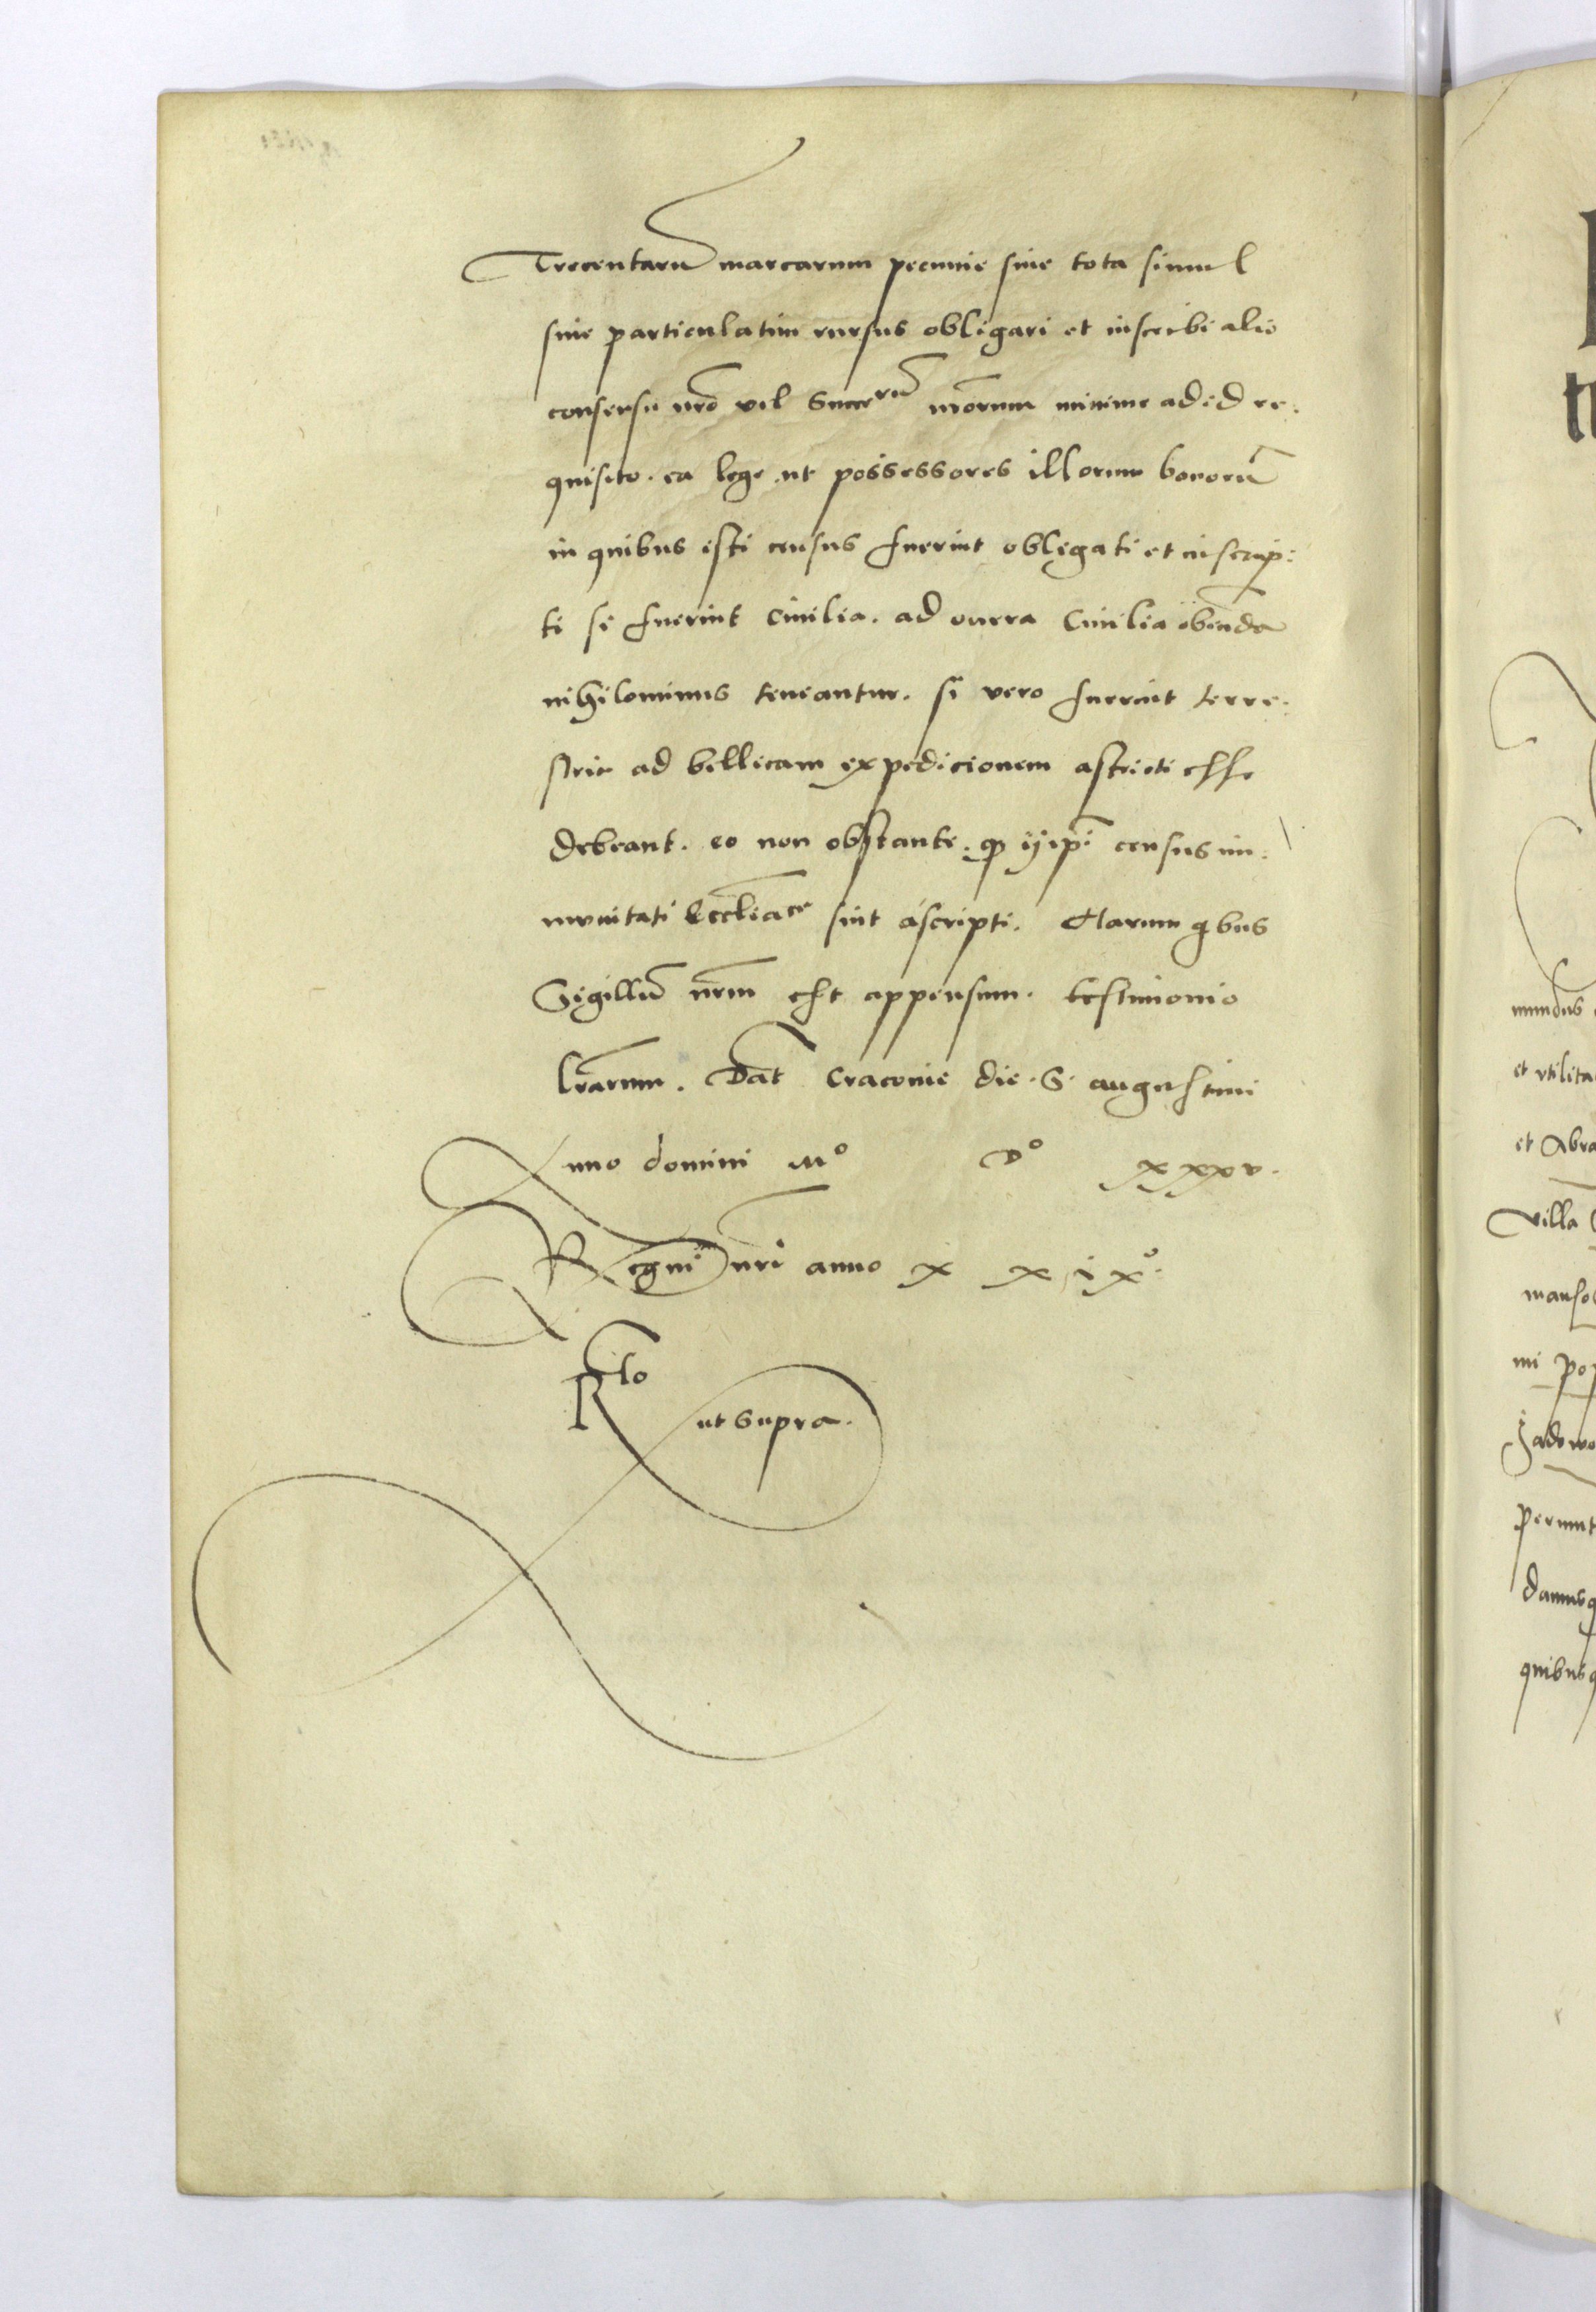 Trecentarũ marcarum pecunie siue tota simul
siue particulatim rursus obligari et inscribi alio
consensu nr̃o vel Succrũ nr̃orum minime ad id re:
quisito. ea lege ut possessores illorum bonorũ
in quibus isti census fuerint obligati et inscrip:
ti si fuerint Ciuilia. ad onera Ciuilia obeunda
nihilominus teneantur. si vero fuerint terre:
stria ad bellicam expedicionem astricti esse
debeant. eo non obstante. qp ij ip̃i census im:
munitati Eccl̃iace sint ascripti. Harum qbus
Sigillũ nr̃m est appensum. testimonio
lr̃arum. Dat̃ Cracouie die. S. augustini
Anno domini Mo Do xxxv.
Regni nr̃i anno x x i xo.
Rl̃o
ut Supra.
mundus
et vtilita
et Abra
villa
manso
mi pop
damusq
quibusq